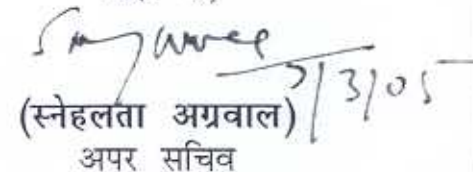 7/3/05
(स्नेहलता अग्रवाल)
अपर सचिव